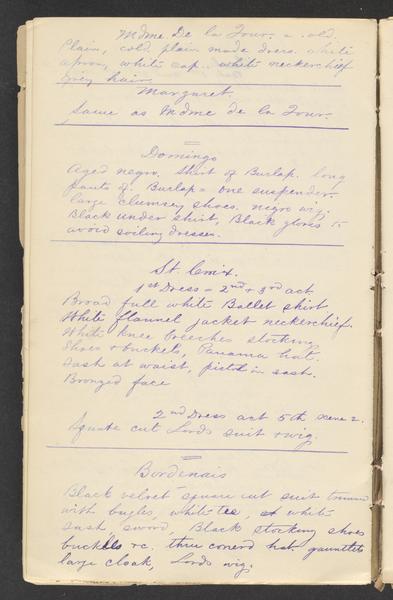 Mdme De la Tour. - old.
Plain, cold plain made dress. white
apron, white cap. white neckerchief
Grey hair.
Margaret.
Same as Mdme de la Tour.
Domingo
Aged negro. Shirt of Burlap. long
pants of Burlap = one suspender.
large clumsey shoes. negro wig.
Black under shirt, Black gloves to
avoid soiling dresses.
St Croix.
1st Dress = 2nd + 3rd act
Broad full white Ballet shirt
White flannel jacket neckerchief.
White knee breeches stocking
Shoes + buckels, Panama hat.
Sash at waist, pistol in sash.
Bronzed face
2nd Dress act 5th scene 2.
Square cut Lords suit + wig.
Bordenais
Black velvet square cut suit trimmed
with bugles, white tee, white
sash, sword, Black stocking shoes
buckells &c. three conerd hat gauntlets
large cloak, Lords wig.